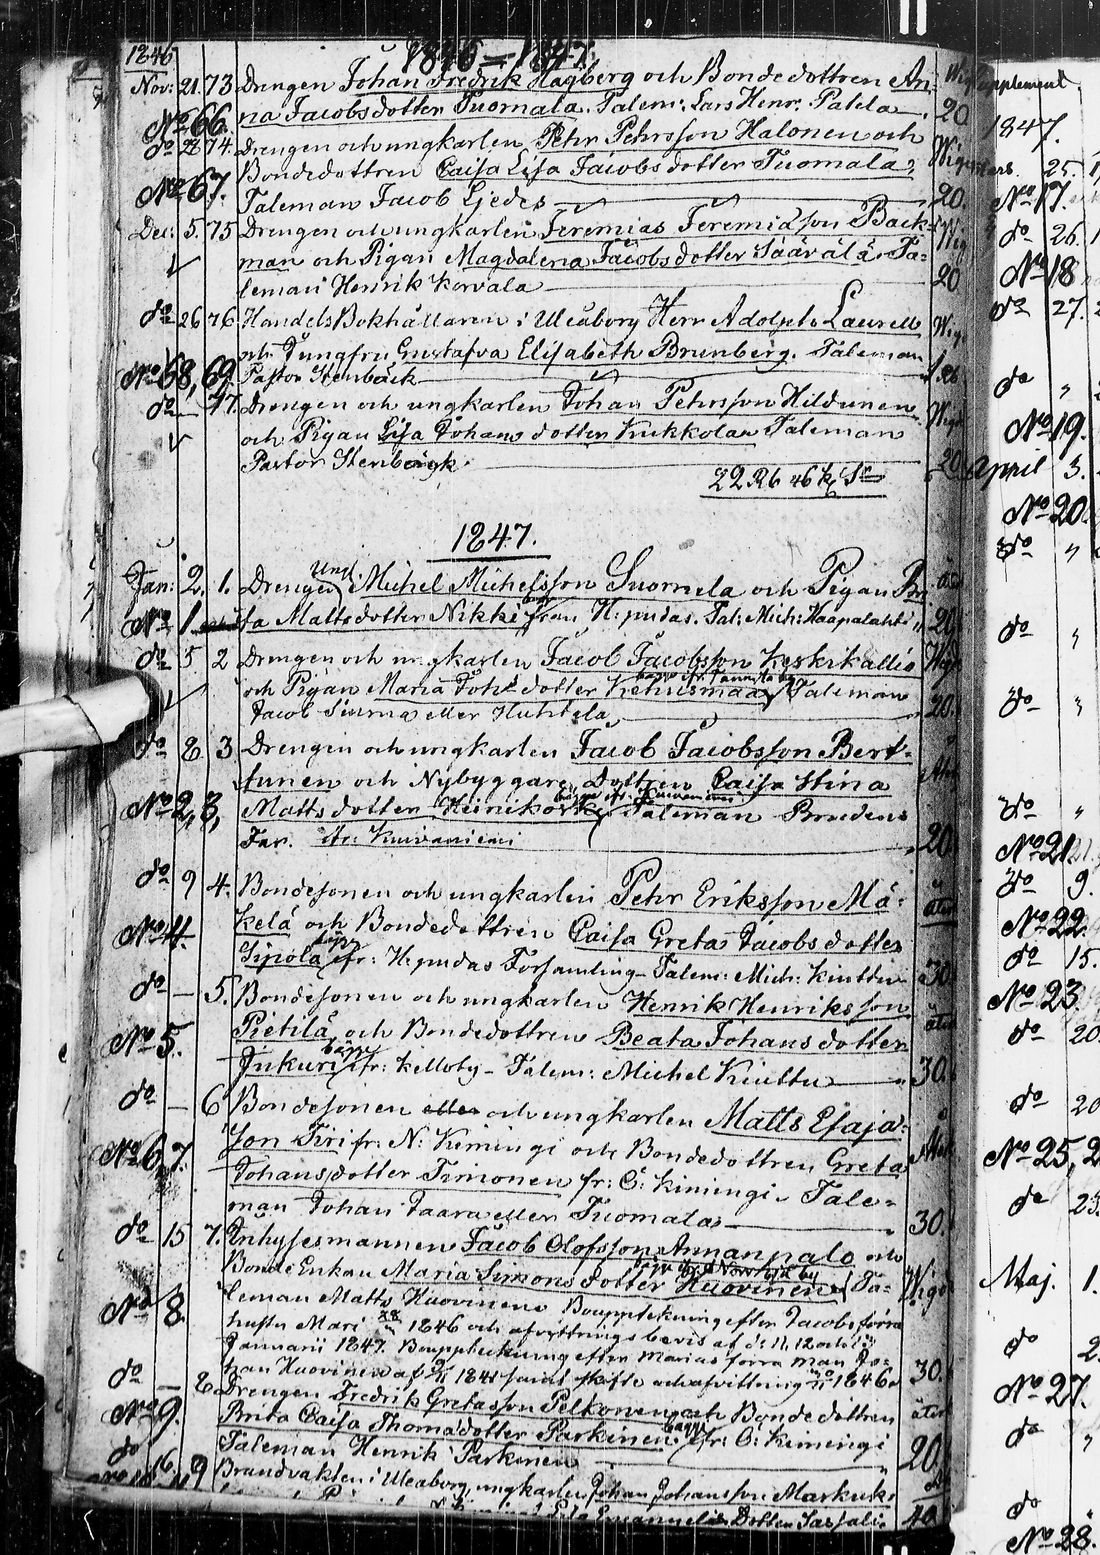 1846
1846–1847.
Nov: 21. 73 Drengen Johan Fredrik Hagberg och Bondedottren An-
na Jacobsdotter Tuomala. Talem: Lars Henr. Pakla 20
No 66.
do 74 Drengen och ungkarlen Pehr Pehrsson Halonen och
Bondedottren Caisa Lisa Jacobsdotter Tuomala,
No 67. Taleman Jacob Ljedes 20.
Dec: 5. 75 Drengen och ungkarlen Jeremias Jeremiasson Back-
man och Pigan Magdalena Jacobsdotter Säävälä. Ta-
leman Henrik Korvala 20
do 26 76 Handels Bokhållaren i Uleåborg Herr Adolph Laurell
och Jungfru Gustafva Elisabeth Brunberg. Taleman
No 68, 69 Pastor Stenbäck
do — 77. Drengen och ungkarlen Johan Pehrsson Hildunen
och Pigan Lisa Johansdotter Kukkola Taleman
Pastor Stenbäck. 20
22 Rb 46 k Sr
1847.
Jan: 2. 1. Drengen Michel Michelsson Suomela och Pigan Bri
No 1 ta Mattsdotter Nikki från H:pudas. Tal: Mich: Haapalahti 20
do 5 2 Drengen och ungkarlen Jacob Jacobsson Keskikallio
och Pigan Maria Joh:dotter Taleman
Jacob Siurma eller Huhtela 20.
do 8 3 Drengen och ungkarlen Jacob Jacobsson Bert-
tunen och Nybyggare Dottren Caisa Stina
No 2, 3, Mattsdotter Taleman Brudens
Far. fr: Kuivaniemi 20.
do 9 4. Bondesonen och ungkarlen Pehr Eriksson Mä-
No 4. kelä och Bondedottren Caisa Greta Jacobsdotter
Sipola fr: H:pudas Församling – Talem: Mich: Kinttu 30
do — 5. Bondesonen och ungkarlen Henrik Henriksson
No 5. Pietilä och Bondedottren Beata Johansdotter
Jnkuri fr: Kelloby – Talem: Michel Kinttu 30.
do — 6 Bondesonen och ungkarlen Matts Esaja-
No 6, 7. son Jiri fr: N: Kimingi och Bondedottren Greta
Johansdotter Timonen fr: Ö: Kimingi – Tale-
man Johan Jaara eller Tuomala 30.
do 15 7. Inhysesmannen Jacob Olofsson Annanpalo och
Bonde Enkan Maria Simonsdotter Huovinen Ta-
No 8 leman Matts Huovinen. Bouppteckning efter Jacobs förra
hustru Mari 1846 och afvittringsbevis af d: 11, 12 och 13
Januarii 1847. Bouppteckning efter Marias förra man Jo-
han Huovinen af 1841 samt skifte och afvittring 1846. 30.
do — 8 Drengen Fredrik Gretasson Pelkonen och Bondedottren
No 9. Brita Caisa Thomasdotter Parkinen fr: Ö: Kimingi
Taleman Henrik Parkinen 20.
do 16 9 Brandvakten i Uleåborg, ungkarlen Johan Johansson Markuk
Lisa Emanuels Dotter 40
Supplement
1847.
Mars. 25.
No 17.
do 26.
No 18
do 27.
do "
No 19.
April 3.
No 20.
do "
do "
do "
do "
No 21
do 9.
No 22
do 15.
No 23
do 20.
do 20
No 25, 2
do 25
Maj. 1.
do 2
No 27.
do "
do
No 28.